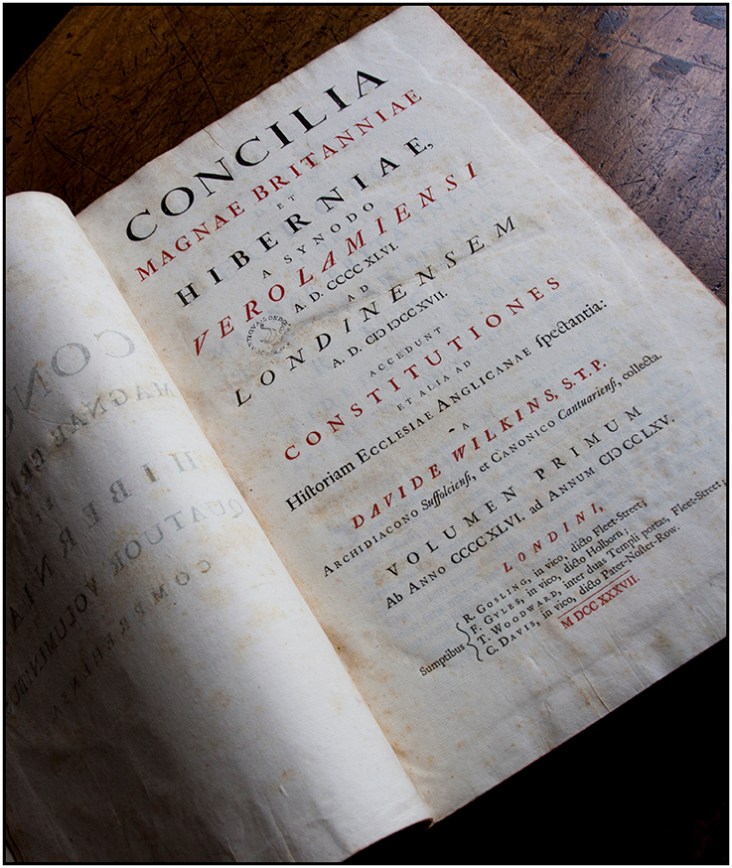 CONCILIA
MAGNAE BRITANNIAE
ET
HIBERNIAE,
A SYNODO
VEROLAMIENSI
A. D. CCCC XLVI.
AD
LONDINENSEM
A. D. CIↃ IↃCC XVII.
ACCEDUNT
CONSTITUTIONES
ET ALIA AD
Hiſtoriam ECCLESIAE ANGLICANAE ſpectantia:
A
DAVIDE WILKINS, S.T.P.
ARCHIDIACONO Suffolcienſi, et CANONICO Cantuarienſi, collecta.
VOLUMEN PRIMUM
Ab ANNO CCCCXLVI. ad ANNUM CIↃCCLXV.
LONDINI,
Sumptibus
R. GOSLING, in vico, dicto Fleet-Street;
F. GYLES, in vico, dicto Holborn;
T. WOODWARD, inter duas Templi portas, Fleet-Street;
C. DAVIS, in vico, dicto Pater-Noſter-Row.
M DCC XXXVII.